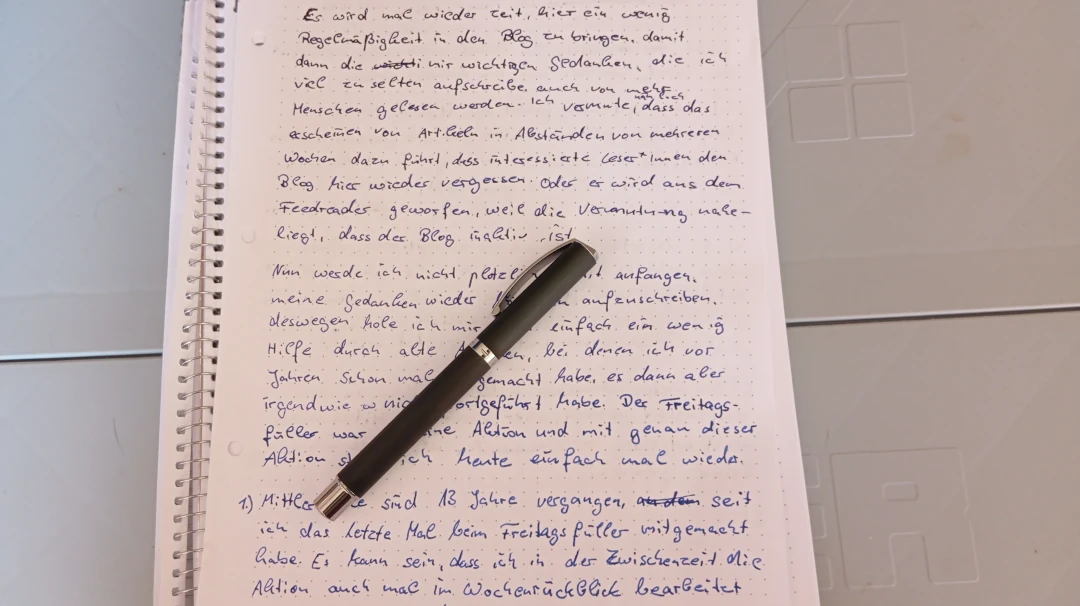 Es wird mal wieder Zeit, hier ein wenig
Regelmäßigkeit in den Blog zu bringen, damit
dann die mir wichtigen Gedanken, die ich
viel zu selten aufschreibe, auch von mehr
Menschen gelesen werden. Ich vermute nämlich, dass das
erscheinen von Artikeln in Abständen von mehreren
Wochen dazu führt, dass interessierte Leser*innen den
Blog hier wieder vergessen. Oder er wird aus dem
Feedreader geworfen, weil die Vermutung nahe-
liegt, dass der Blog inaktiv ist.
Nun werde ich nicht anfangen,
meine Gedanken wieder aufzuschreiben.
deswegen hole ich mir einfach ein wenig
Hilfe durch alte bei denen ich vor
Jahren schon mal gemacht habe, es dann aber
irgendwie habe. Der Freitags-
füller war Aktion und mit genau dieser
Aktion ich heute einfach mal wieder.
1.) sind 13 Jahre vergangen, seit
ich das letzte Mal beim Freitagsfüller mitgemacht
habe. Es kann sein, dass ich in der Zwischenzeit die
Aktion auch mal im Wochenrückblick bearbeitet